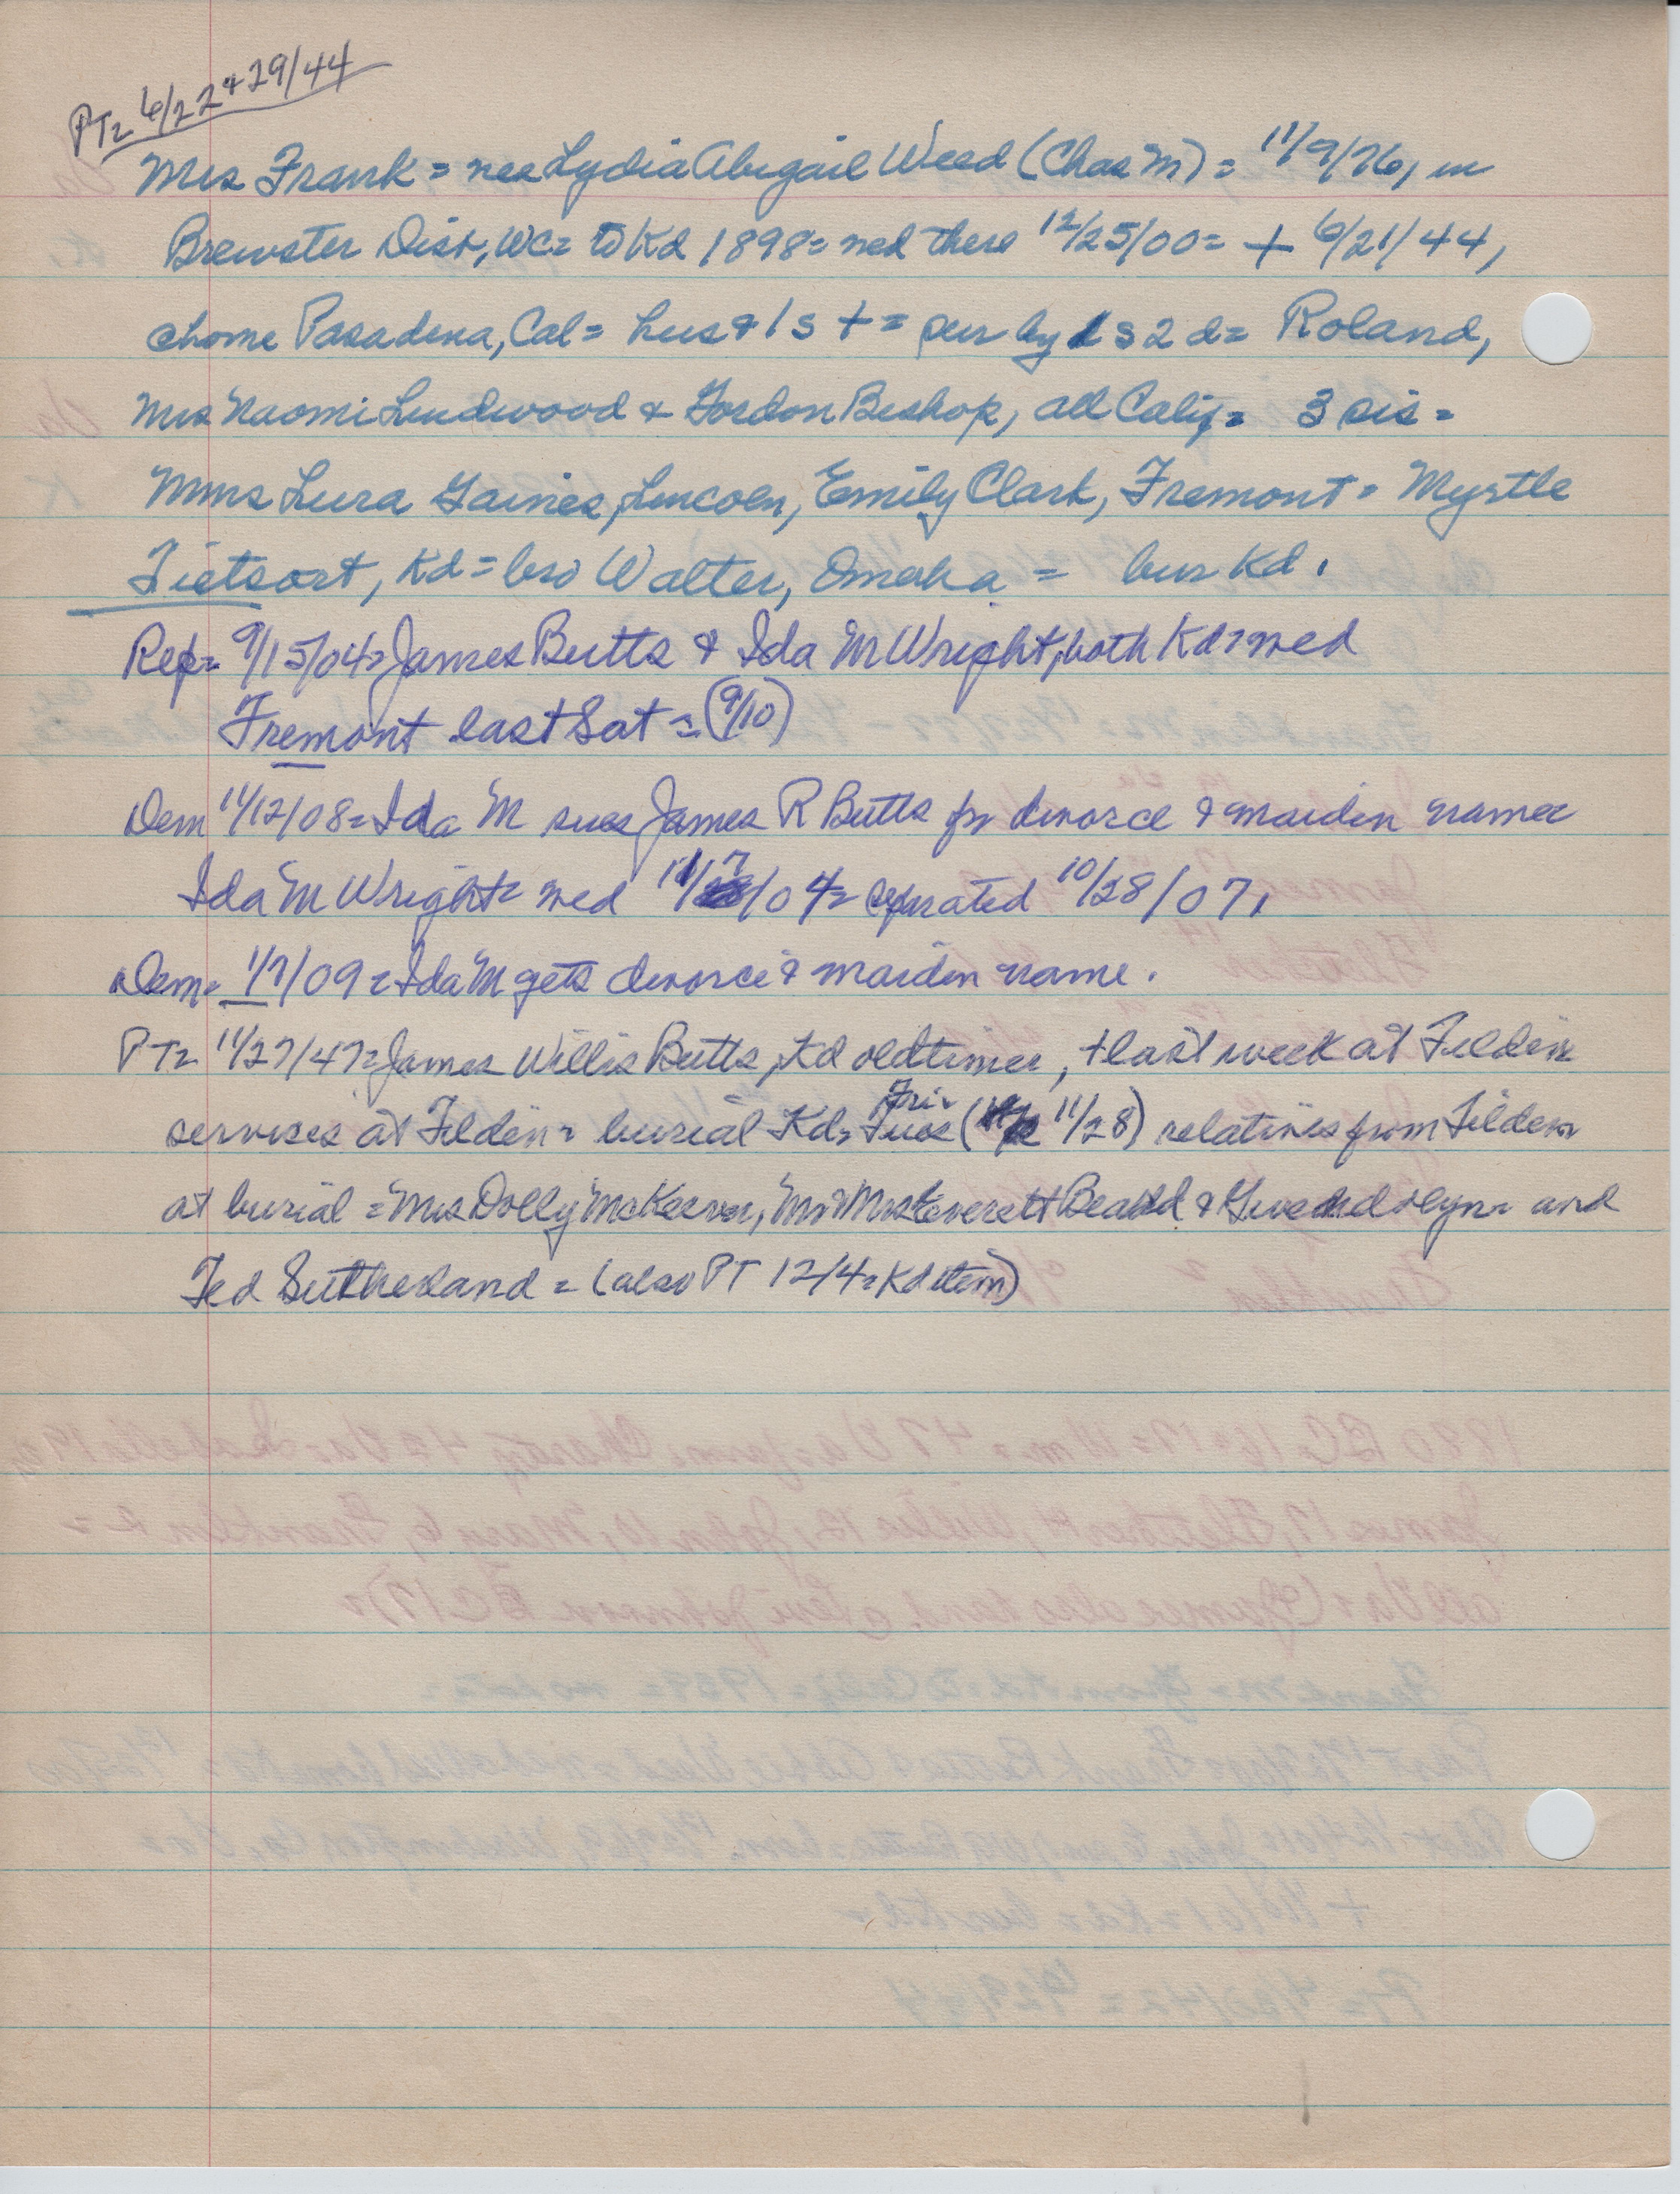 PT= 6/22 & 29/44
Mrs Frank = nee Lydia Abigail Weed (Chas M) = 11/9/76, in
Brewster Dist, WC= to Kd 1898= wed there 12/25/00= + 6/21/44,
@home Pasadena, Cal = hus & 1 s + = sur by 1 s 2 d= Roland,
Mrs Naomi Lindwood & Gordon Bishop, all Calif= 3 sis=
Mmes Lura Gaines, Lincoln, Emily Clark, Fremont = Myrtle
Tietsort, Kd = bro Walter, Omaha = bur Kd.
Rep= 9/15/04= James Butts & Ida M Wright, both Kd= wed
Fremont last Sat = (9/10)
Dem 11/12/08= Ida M sues James R Butts for divorce & maiden name=
Ida M Wright= wed 11/7/04= separated 10/28/07.
Dem= 1/7/09= Ida M gets divorce & maiden name.
PT= 11/27/47= James Willis Butts, Kd oldtimer, + last week at Tilden
services at Tilden= burial Kd= Fri= (11/28) relatives from Tilden
at burial = Mrs Dolly McKeever, Mr & Mrs Everett Beadd & Gwendolyn= and
Ted Sutherland = (also PT 12/4= Kd item)